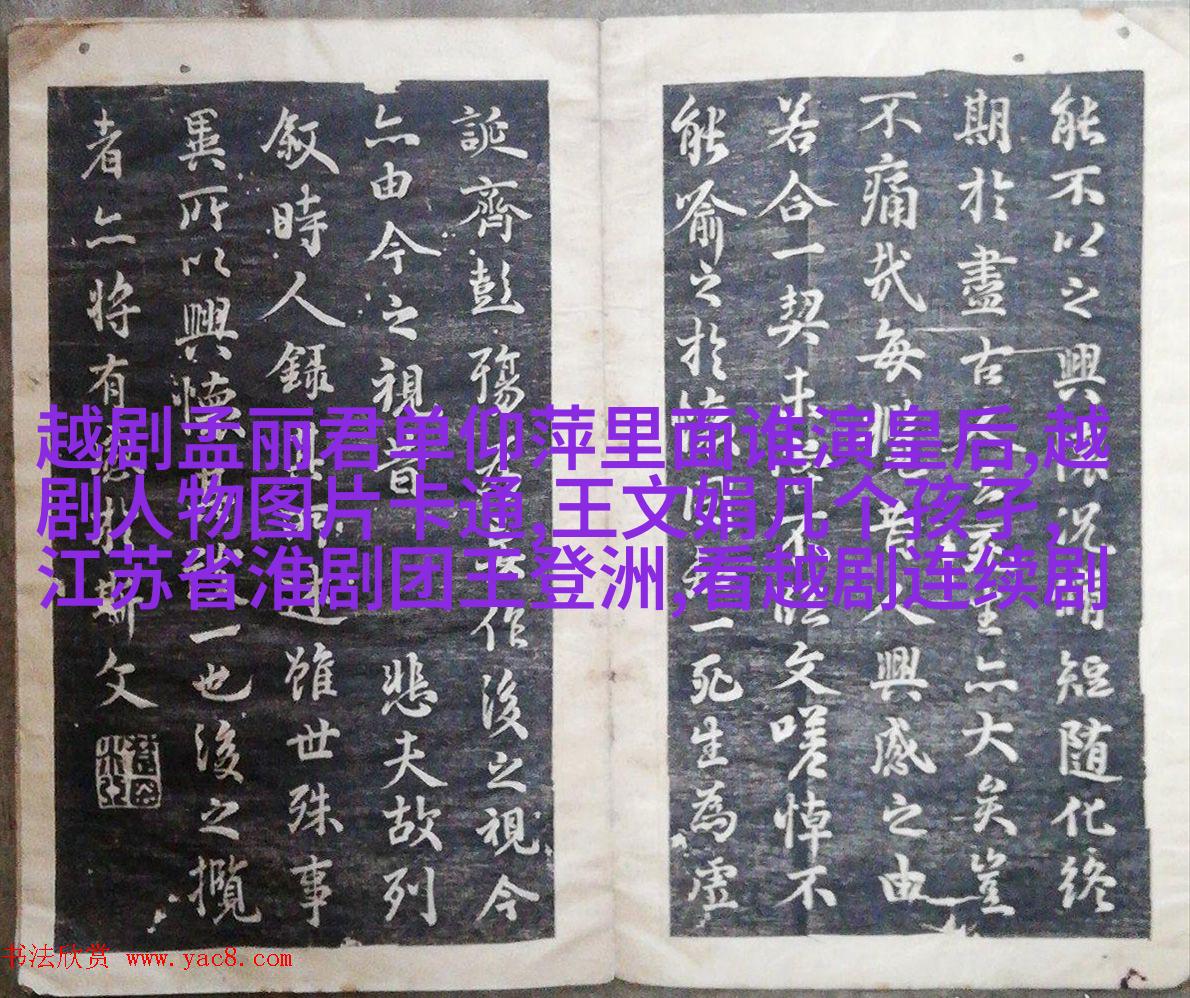 能不以之興懷況脩短随化終
期於盡古人云死生亦大矣豈
不痛哉每攬昔人興感之由
若合一契未嘗不臨文嗟悼不
能喻之於懷固知一死生為虛
誕齊彭殤為妄作後之視今
亦由今之視昔悲夫故列
敘時人錄其所述雖世殊事
異所以興懷其致一也後之攬
者亦将有感於斯文
越剧孟丽君单仰萍里面谁演皇后,越
剧人物图片卡通,王文娟几个孩子,
江苏省淮剧团王登洲,看越剧连续剧
书法欣赏 www.yac8.com